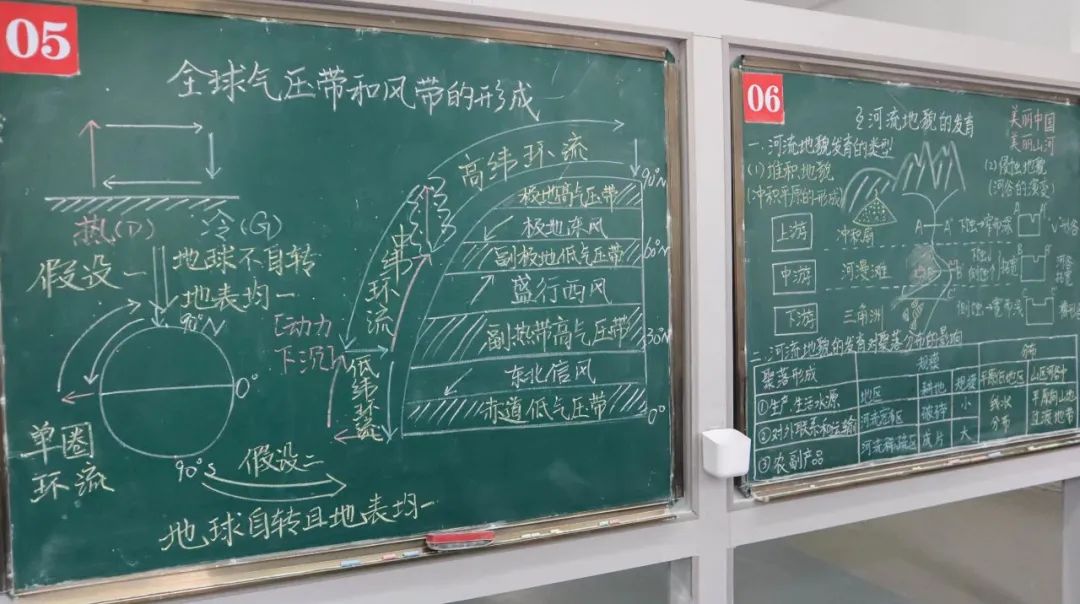 05
全球气压带和风带的形成
热(D)
冷(G)
假设一
地球不自转
地表均一
90°N
0°
90°S
单圈
环流
假设二
地球自转且地表均一
[动力
下沉]
高纬环流
中纬环流
低纬环流
极地高气压带
极地东风
副极地低气压带
盛行西风
副热带高气压带
东北信风
赤道低气压带
90°N
60°N
30°N
0°
06
河流地貌的发育
美丽中国
美丽山河
一.河流地貌发育的类型
(1)堆积地貌
(冲积平原的形成)
(2)侵蚀地貌
(河谷的演变)
上游
冲积扇
中游
河漫滩
下游
三角洲
A
A'
二.河流地貌的发育对聚落分布的影响
聚落形成
规模
分布
①生产、生活水源
地区
耕地
规模
平原低地区
山区河谷中
②对外联系和运输
破碎
小
线状
分布
③农副产品
河流稀疏区
成片
大